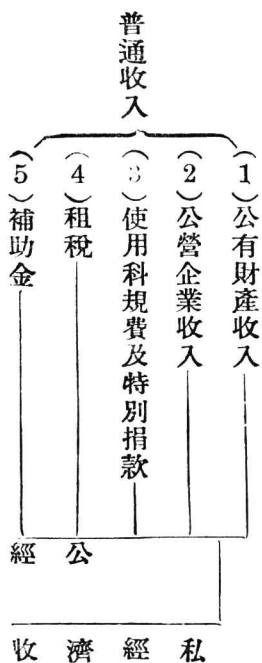 普通收入
(1)公有財產收入
(2)公營企業收入
(3)使用科規費及特別捐款
(4)租稅
(5)補助金
私經濟收
公經